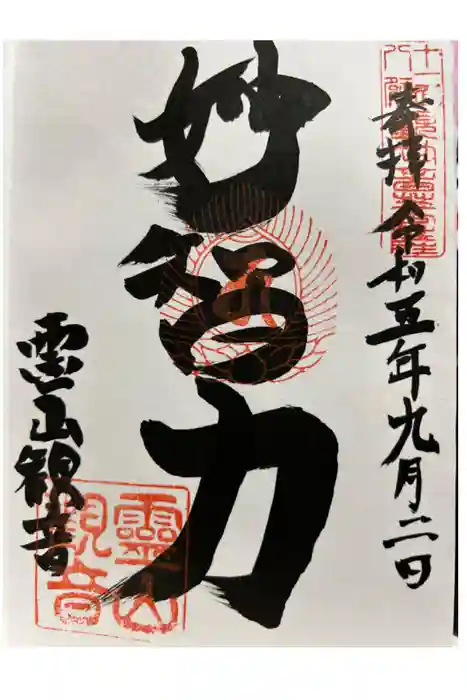 奉拝 令和五年九月二日
妙智力
霊山観音
靈山
観音